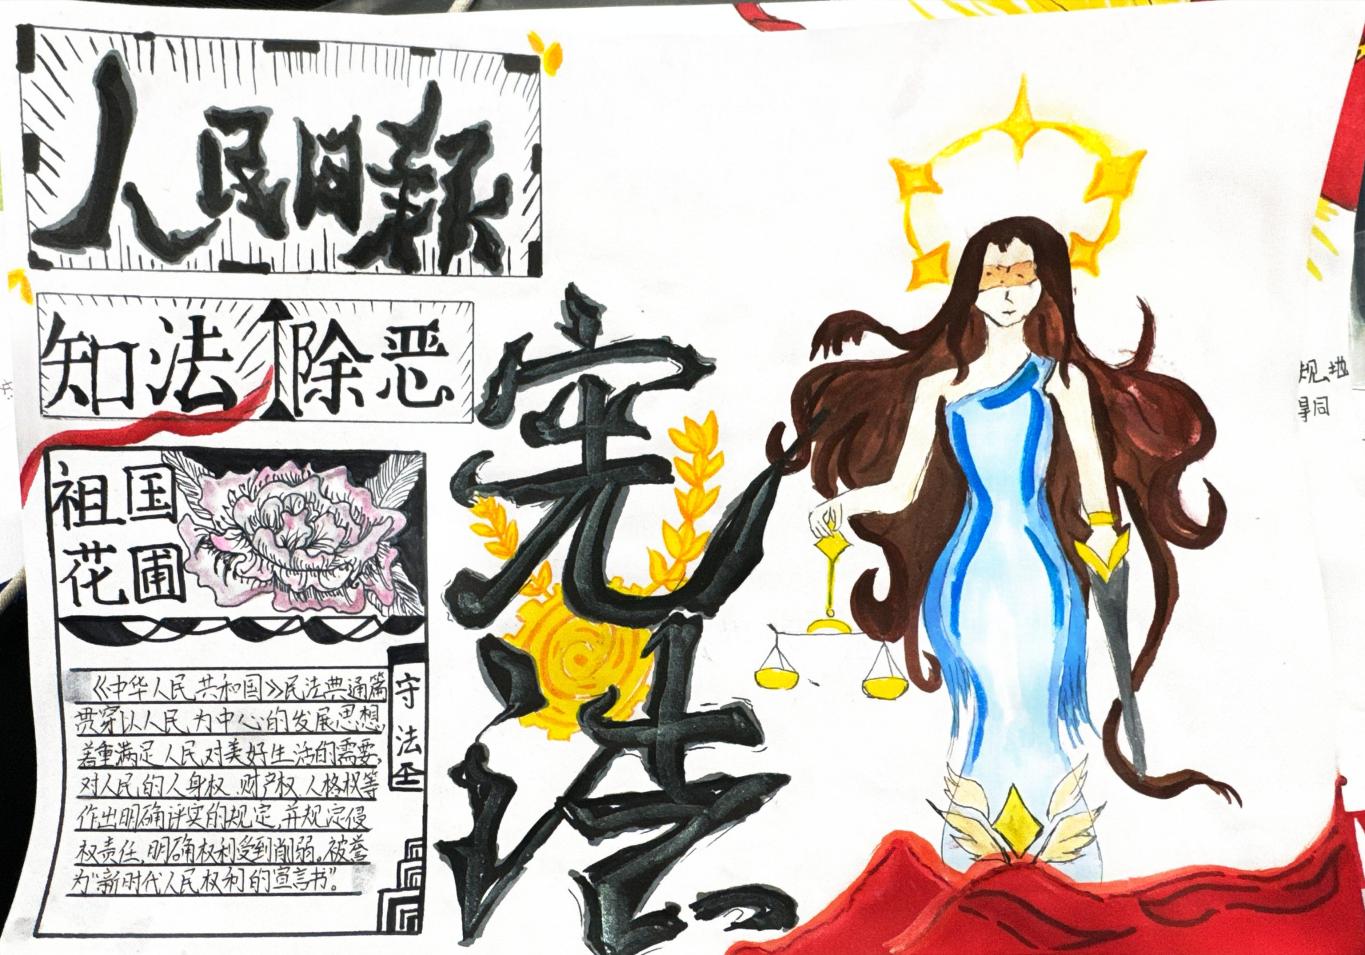 人民日报
知法
除恶
祖国
花圃
宪法
《中华人民共和国》民法典通篇
贯穿以人民为中心的发展思想
着重满足人民对美好生活的需要,
对人民的人身权、财产权、人格权等
作出明确详实的规定,并规定侵
权责任,明确权利受到削弱。被誉
为"新时代人民权利的宣言书"。
守法